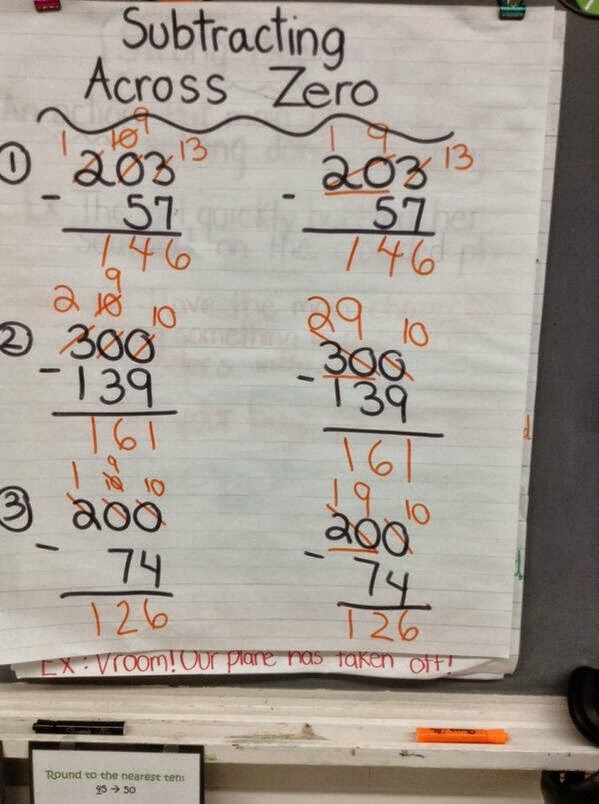 Subtracting
Across Zero
9
1 10 13
① 203
- 57
146
1 9 13
203
- 57
146
9
2 10 10
② 300
- 139
161
29 10
300
- 139
161
9
1 10 10
③ 200
- 74
126
1 9 10
200
- 74
126
EX: Vroom! Our plane has taken off!
Round to the nearest ten:
45 → 50